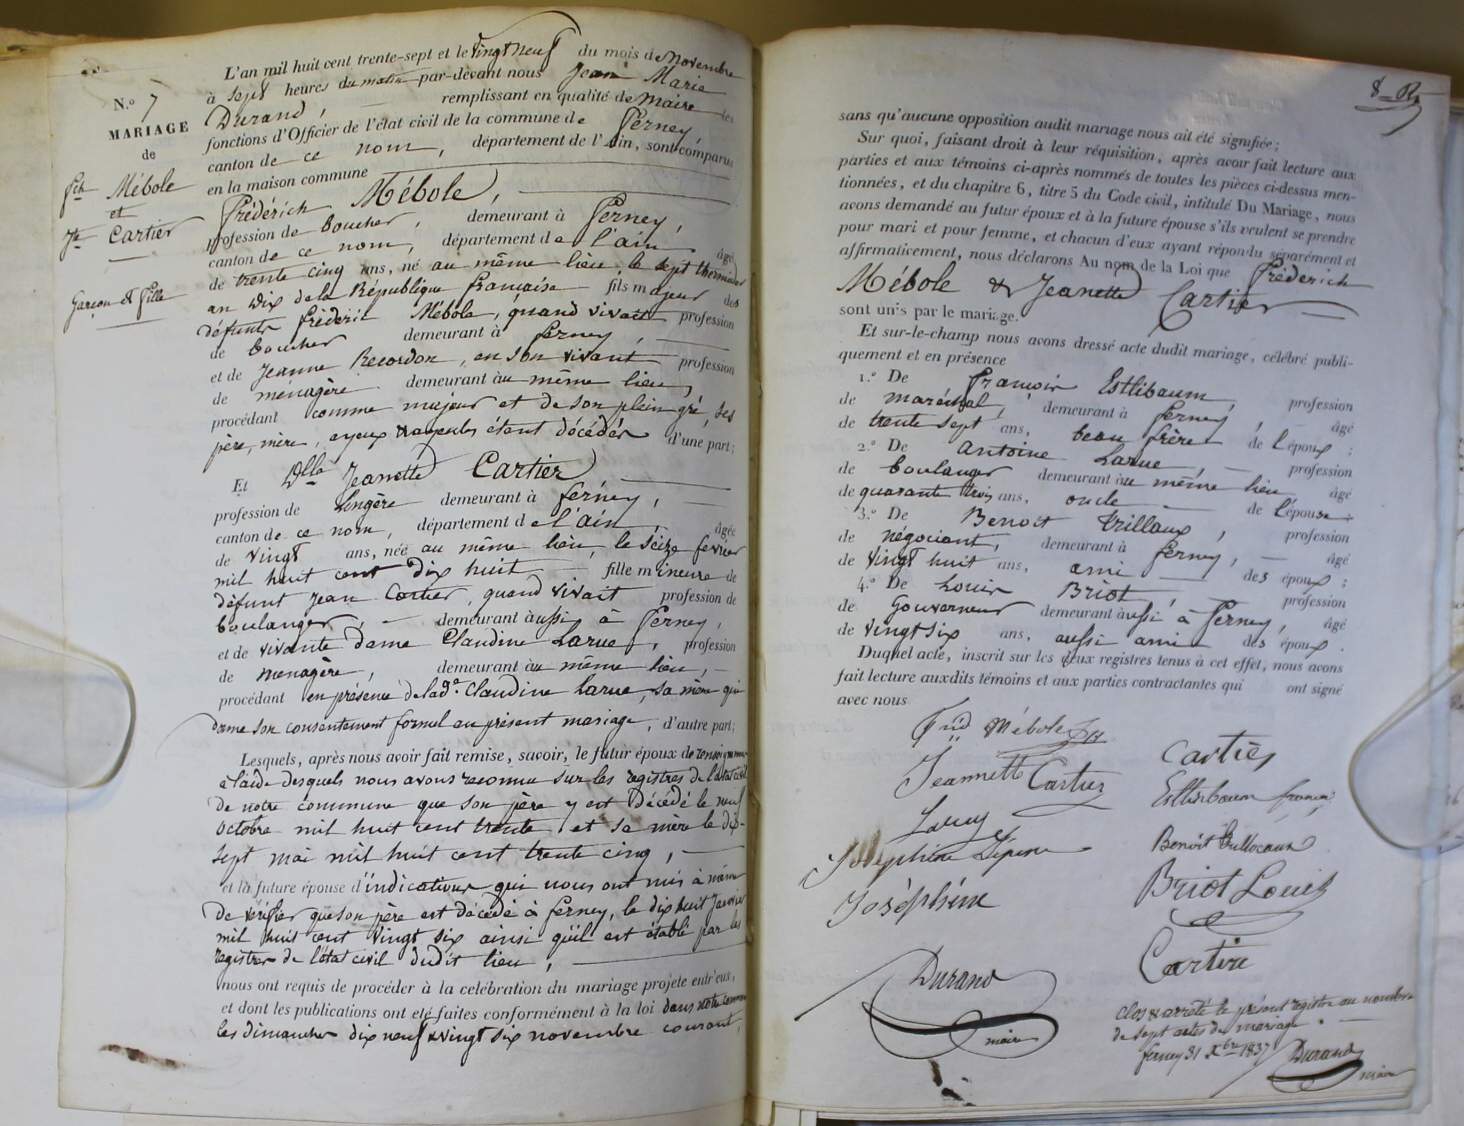 N.º 7
MARIAGE
de
Fch Mébole
et
Jte Cartier
Garçon & fille
L'an mil huit cent trente-sept et le vingt neuf du mois de Novembre
à sept heures du matin par-devant nous Jean Marie
Durand, remplissant en qualité de Maire les
fonctions d'Officier de l'état civil de la commune de Ferney,
canton de ce nom, département de l'Ain, sont comparus
en la maison commune
Frédérich Mébole,
profession de boucher, demeurant à Ferney,
canton de ce nom, département de l'ain âgé
de trente cinq ans, né au même lieu, le sept thermidor
an dix de la République française fils majeur des
défunts fréderic Mébole, quand vivait profession
de boucher demeurant à ferney,
et de Jeanne Recordon, en son vivant profession
de ménagère demeurant au même lieu,
procédant comme majeur et de son plein gré, ses
père, mère, ayeux & ayeules étant décédés d'une part;
Et Dlle Jeanette Cartier
profession de lingère demeurant à ferney,
canton de ce nom, département de l'ain, âgée
de vingt ans, née au même lieu, le seize fevrier
mil huit cent dix huit fille mineure de
défunt Jean Cartier, quand vivait profession de
boulanger, demeurant aussi à Ferney,
et de vivante dame Claudine Larue, profession
de menagère, demeurant au même lieu,
procédant en présence de lade. Claudine Larue, sa mère qui
donne son consentement formel au présent mariage, d'autre part;
Lesquels, après nous avoir fait remise, savoir, le futur époux de renseignemens
a l'aide desquels nous avons reconnu sur les registres de l'état civil
de notre commune que son père y est décédé le neuf
octobre mil huit cent trente, et sa mère le dix-
sept mai mil huit cent trente cinq,
et la future épouse d'indications qui nous ont mis à même
de vérifier que son père est décédé à ferney, le dix huit Janvier
mil huit cent vingt six ainsi qu'il est établi par les
registres de l'état civil dudit lieu,
nous ont requis de procéder à la celébration du mariage projeté entr'eux,
et dont les publications ont été faites conformément à la loi dans notre commune
les dimanches dix neuf & vingt six novembre courant,
sans qu'aucune opposition audit mariage nous ait été signifiée;
Sur quoi, faisant droit à leur réquisition, après avoir fait lecture aux
parties et aux témoins ci-après nommés de toutes les pièces ci-dessus men-
tionnées, et du chapitre 6, titre 5 du Code civil, intitulé Du Mariage, nous
avons demandé au futur époux et à la future épouse s'ils veulent se prendre
pour mari et pour femme, et chacun d'eux ayant répondu séparément et
affirmativement, nous déclarons Au nom de la Loi que Fréderich
Mébole & Jeanette Cartier
sont unis par le mariage.
Et sur-le-champ nous avons dressé acte dudit mariage, célébré publi-
quement et en présence
1.º De François Estlibaum, profession
de maréchal, demeurant à ferney, âgé
de trente sept ans, beau frère de l'époux;
2.º De Antoine Larue, profession
de boulanger demeurant au même lieu, âgé
de quarante trois ans, oncle de l'épouse;
3.º De Benoit profession
de négociant, demeurant à ferney, âgé
de vingt huit ans, ami des époux;
4.º De Louis Briot, profession
de Gouverneur demeurant aussi à Ferney, âgé
de vingt six ans, aussi ami des époux.
Duquel acte, inscrit sur les deux registres tenus à cet effet, nous avons
fait lecture auxdits témoins et aux parties contractantes qui ont signé
avec nous
Fréd Mébole
Cartier
Jeannette Cartier
Josephine
Benoit
Briot Louis
Joséphine
Durand
maire
Clos & arrêté le présent registre au nombre
de sept actes de mariage.
ferney 31 Xbre 1837
Durand
maire